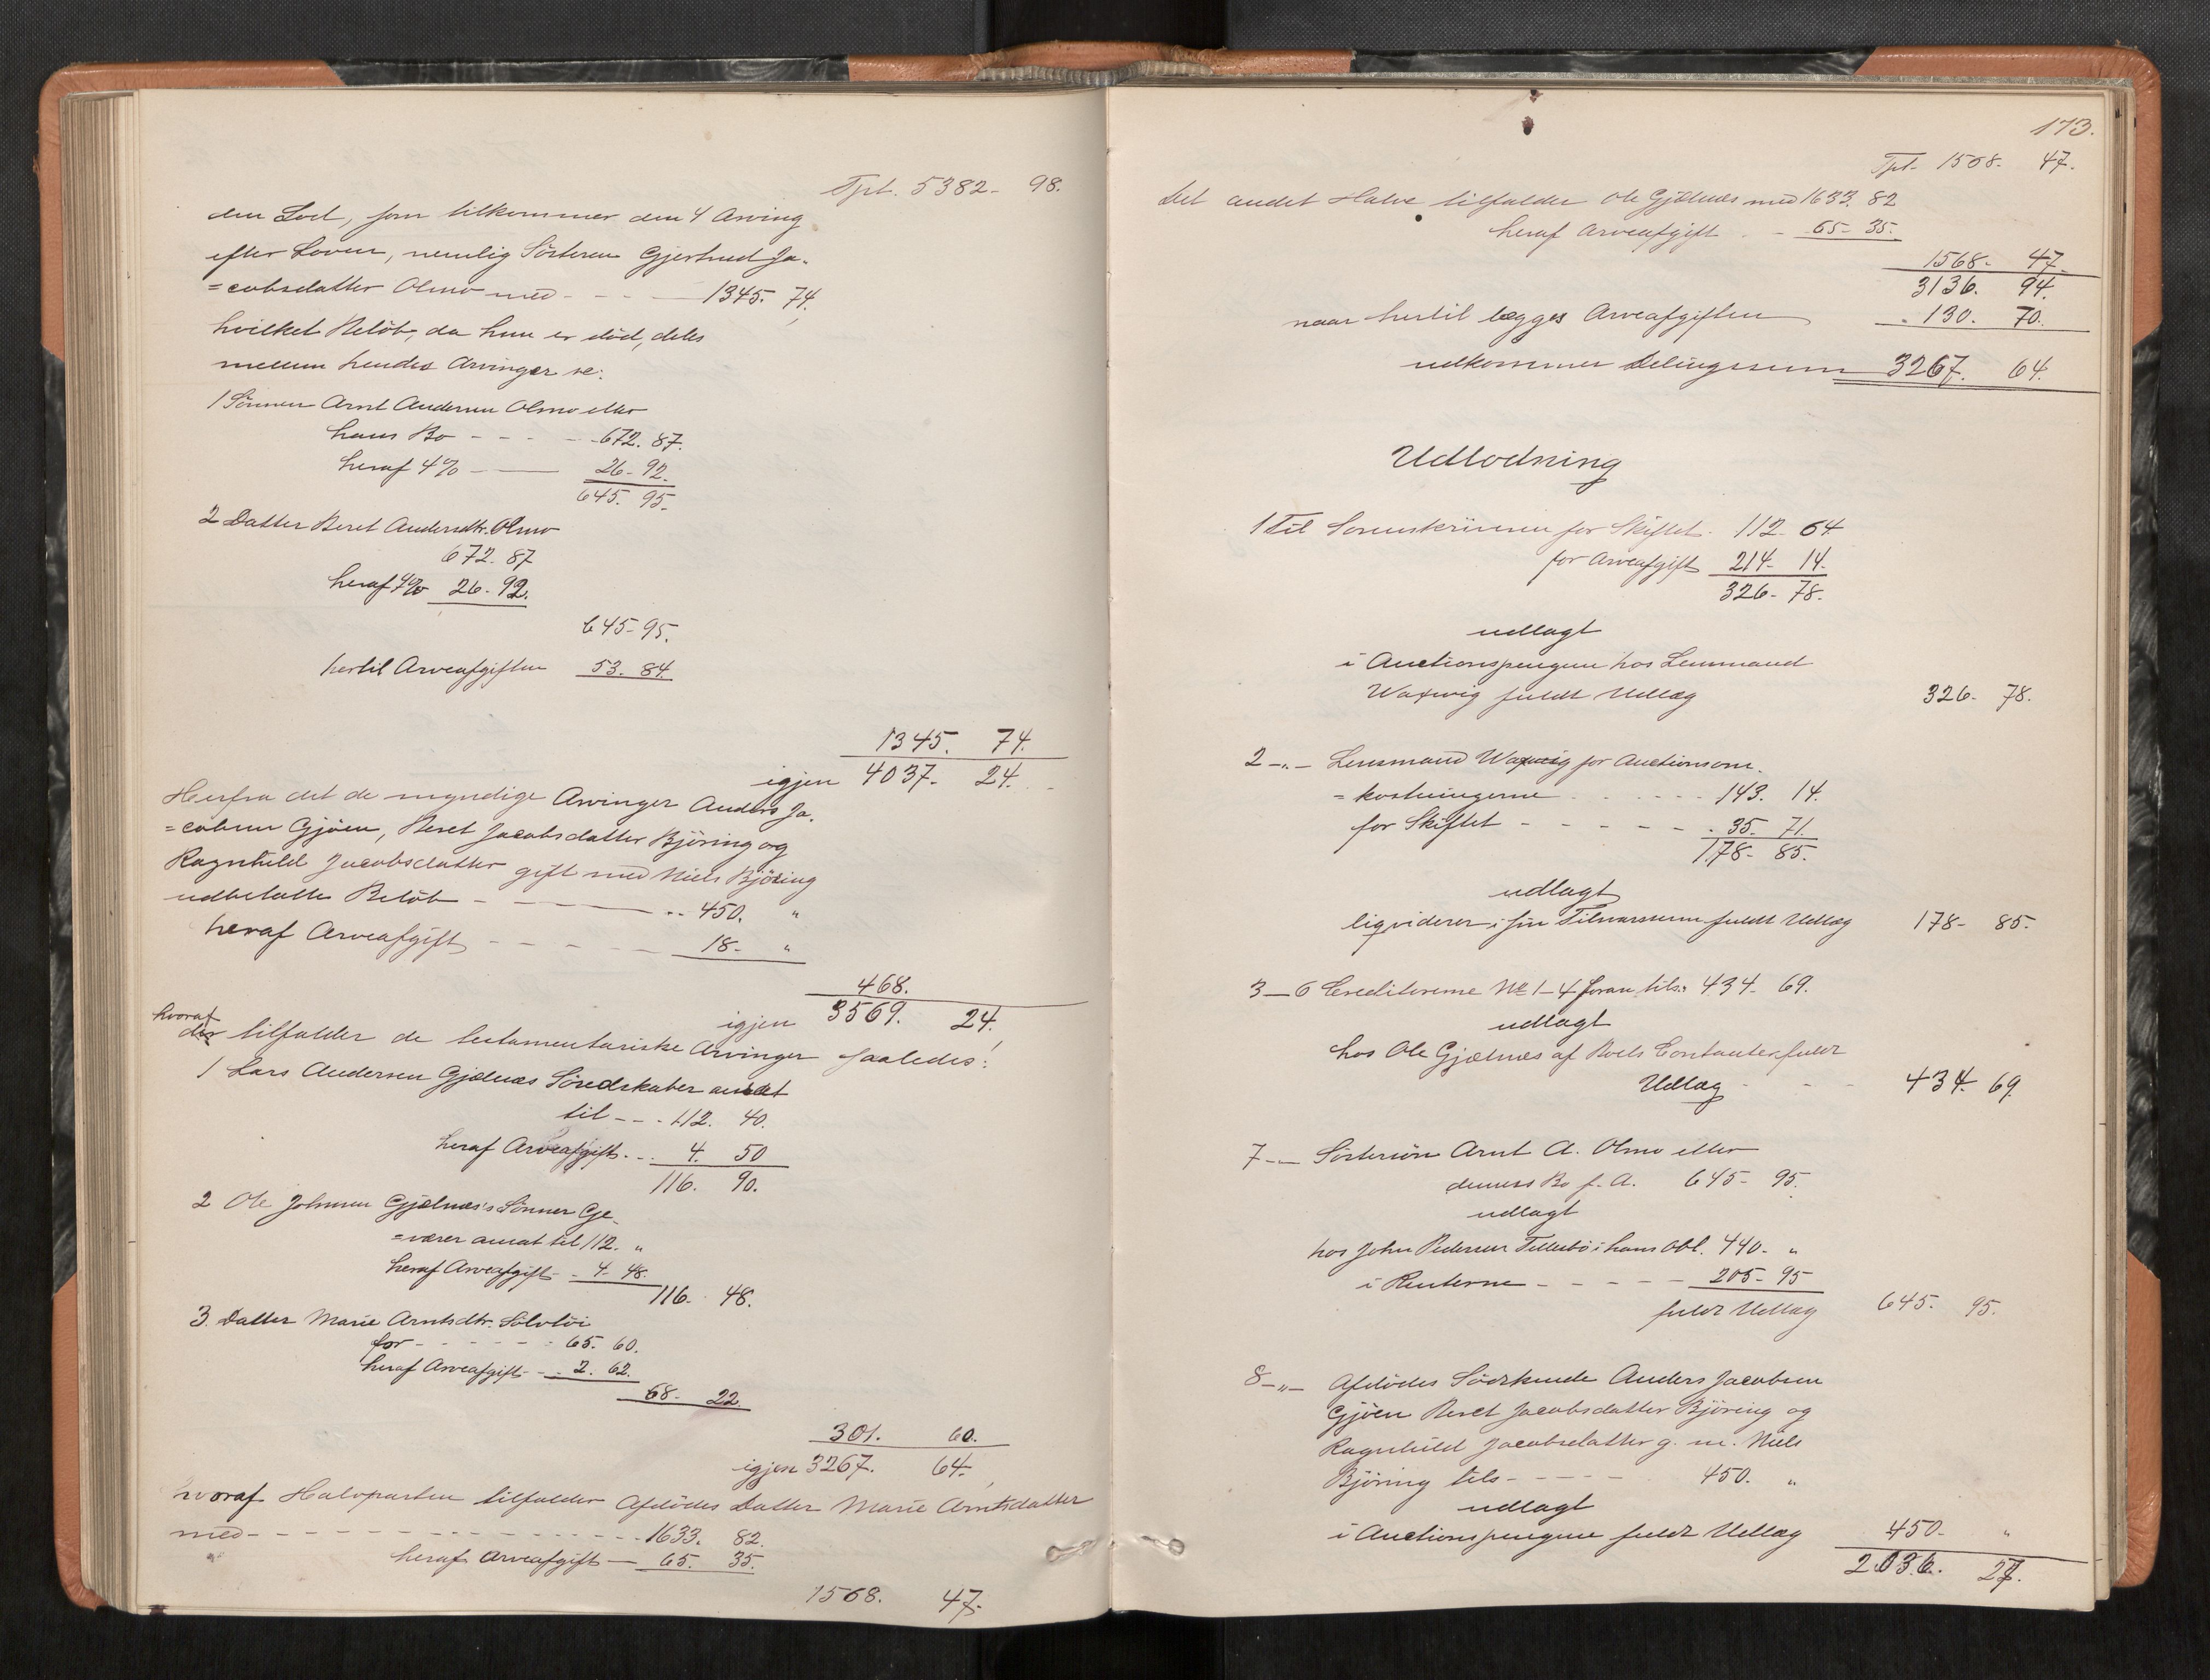 Tpt. 5382- 98.
den Lod, som tilkommer den 4 Arving
efter Loven, nemlig Søsteren Gjertrud Ja-
=cobsdatter Olmo med - - - 1345. 74.
hvilket Beløb, da hun er død, deles
mellem hendes Arvinger se:
1 Sønnen Arnt Andersen Olmo eller
hans Bo - - - - 672. 87.
heraf 4% - 26- 92.
645. 95.
2 Datter Beret Andersdtr. Olmo
672. 87
heraf 4% 26- 92.
645- 95.
hertil Arveafgiften 53. 84.
1345. 74.
igjen 4037- 24.
Herfra det de myndige Arvinger Anders Ja-
=cobsen Gjøen, Beret Jacobsdatter Bjøring og
Ragnhild Jacobsdatter gift med Niels Bjøring
udbetalte Beløb - - - 450. "
heraf Arveafgift - - - - - 18- "
468.
igjen 3569. 24.
hvoraf
der tilfalder de testamentariske Arvinger saaledes:
1 Lars Andersen Gjølnæs Sønedskaber ansat
til - - - 112. 40.
heraf Arveafgift - - 4. 50
116. 90.
2 Ole Johnsen Gjølnæs's Sønner Ge-
=værer ansat til 112. "
heraf Arveafgift - - 4- 48.
116- 48.
3. Datter Marie Arntsdtr. Sølvtøi
for - - - - - 65. 60.
heraf Arveafgift - - 2. 62.
68- 22.
301. 60.
igjen 3267. 64.
hvoraf Halvparten tilfalder Afdødes Datter Marie Arntsdatter
med - - - - - - - - - - 1633. 82.
heraf Arveafgift - 65. 35.
1568. 47.
173.
Tpt- 1568- 47.
Det andet Halve tilfalder Ole Gjølnæs med 1633. 82
heraf Arveafgift - - 65- 35.
1568- 47.
3136. 94.
naar hertil lægges Arveafgiften - 130. 70.
udkommer Delingssum 3267. 64.
Udlodning
1 Til Sorenskriveren for Skiftet - 112- 64
for Arveafgift 214- 14.
326- 78.
udlagt
i Auctionspengene hos Lensmand
Waxwig fuldt Udlæg 326- 78.
2 -"- Lensmand Waxwig for Auctionsom-
=kostningerne - - - - - 143. 14.
for Skiftet - - - - - - 35. 71.
178- 85.
udlagt
liqviderer i sin Tilsvarssum fuldt Udlæg 178- 85.
3 - 6 Creditorerne No 1-4 foran tils. 434- 69.
udlagt
hos Ole Gjølnæs af Boets Contanter fuldt
Udlæg - - - 434. 69.
7 -"- Søstersøn Arnt A. Olmo eller
dennes Bo f. A. 645- 95.
udlagt
hos John Pedersen Tellebø i hans Obl. 440- "
i Renterne - - - - - 205- 95
fuldt Udlæg 645. 95.
8 -"- Afdødes Sødskende Anders Jacobsen
Gjøen Beret Jacobsdatter Bjøring og
Ragnhild Jacobsdatter g. m. Niels
Bjøring tils - - - - - 450. "
udlagt
i Auctionspengene fuldt Udlæg 450- "
2.036. 27.